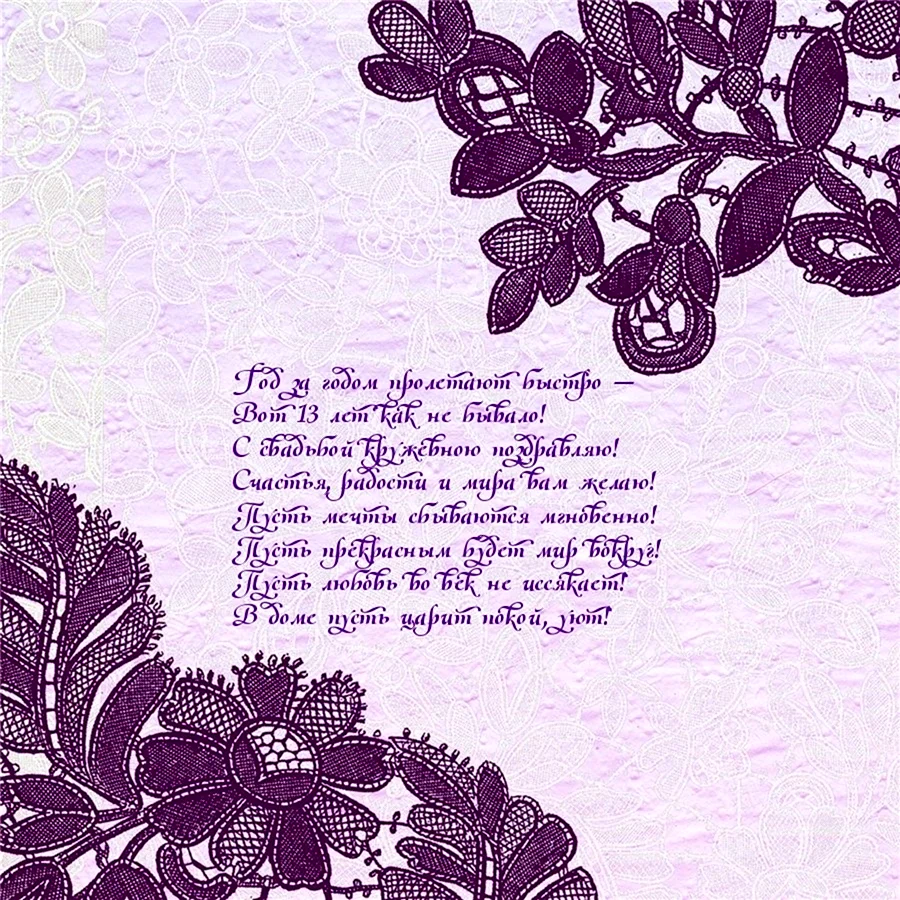 Год за годом пролетают быстро –
Вот 13 лет как не бывало!
С свадьбой кружевною поздравляю!
Счастья, радости и мира вам желаю!
Пусть мечты сбываются мгновенно!
Пусть прекрасным будет мир вокруг!
Пусть любовь во век не иссякает!
В доме пусть царит покой, уют!